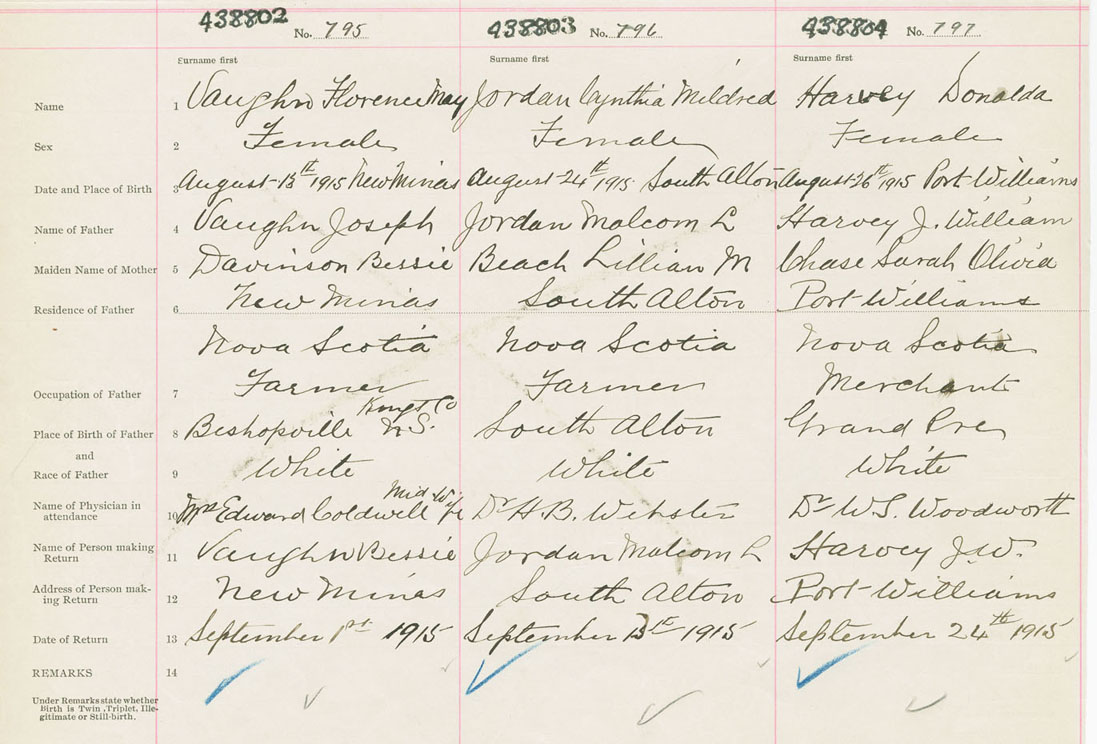 438802 No. 795 438803 No. 796 438804 No. 797
Surname first Surname first Surname first
Name 1 Vaughn Florence May Jordan Cynthia Mildred Harvey Donalda
Sex 2 Female Female Female
Date and Place of Birth 3 August 13th 1915 New Minas August 24th 1915 South Alton August 26th 1915 Port Williams
Name of Father 4 Vaughn Joseph Jordan Malcom L Harvey J. William
Maiden Name of Mother 5 Davinson Bessie Beach Lillian M Chase Sarah Olivia
Residence of Father 6 New Minas South Alton Port Williams
Nova Scotia Nova Scotia Nova Scotia
Occupation of Father 7 Farmer Farmer Merchant
Kings Co
Place of Birth of Father 8 Bishopville N.S. South Alton Grand Pre
and
Race of Father 9 White White White
Mid Wife
Name of Physician in attendance 10 Mrs Edward Coldwell Dr H.B. Webster Dr W.S. Woodworth
Name of Person making Return 11 Vaughn Bessie Jordan Malcom L Harvey J.W.
Address of Person mak-
ing Return 12 New Minas South Alton Port Williams
Date of Return 13 September 1st 1915 September 1915 September 24th 1915
REMARKS 14
Under Remarks state whether
Birth is Twin, Triplet, Ille-
gitimate or Still-birth.